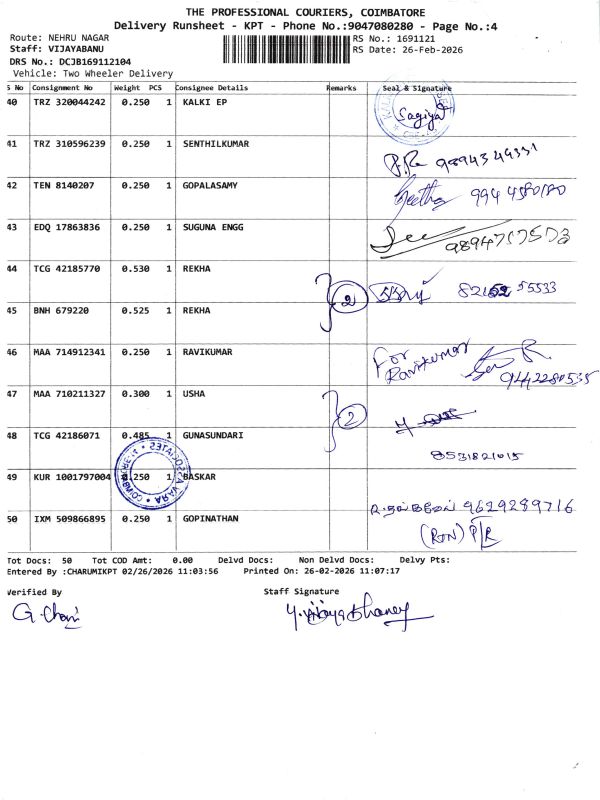 THE PROFESSIONAL COURIERS, COIMBATORE
Delivery Runsheet - KPT - Phone No.:9047080280 - Page No.:4
Route: NEHRU NAGAR
RS No.: 1691121
Staff: VIJAYABANU
RS Date: 26-Feb-2026
DRS No.: DCJB169112104
Vehicle: Two Wheeler Delivery
S No Consignment No Weight PCS Consignee Details Remarks Seal & Signature
40 TRZ 320044242 0.250 1 KALKI EP
41 TRZ 310596239 0.250 1 SENTHILKUMAR
9894349331
42 TEN 8140207 0.250 1 GOPALASAMY
Geetha 994 4580180
43 EDQ 17863836 0.250 1 SUGUNA ENGG
9894757573
44 TCG 42185770 0.530 1 REKHA
2
45 BNH 679220 0.525 1 REKHA
46 MAA 714912341 0.250 1 RAVIKUMAR
For Ravikumar
9442280535
47 MAA 710211327 0.300 1 USHA
2
48 TCG 42186071 0.485 1 GUNASUNDARI
8531821015
49 KUR 1001797004 0.250 1 BASKAR
9629289716
50 IXM 509866895 0.250 1 GOPINATHAN
Tot Docs: 50 Tot COD Amt: 0.00 Delvd Docs: Non Delvd Docs: Delvy Pts:
Entered By :CHARUMIKPT 02/26/2026 11:03:56 Printed On: 26-02-2026 11:07:17
Verified By Staff Signature